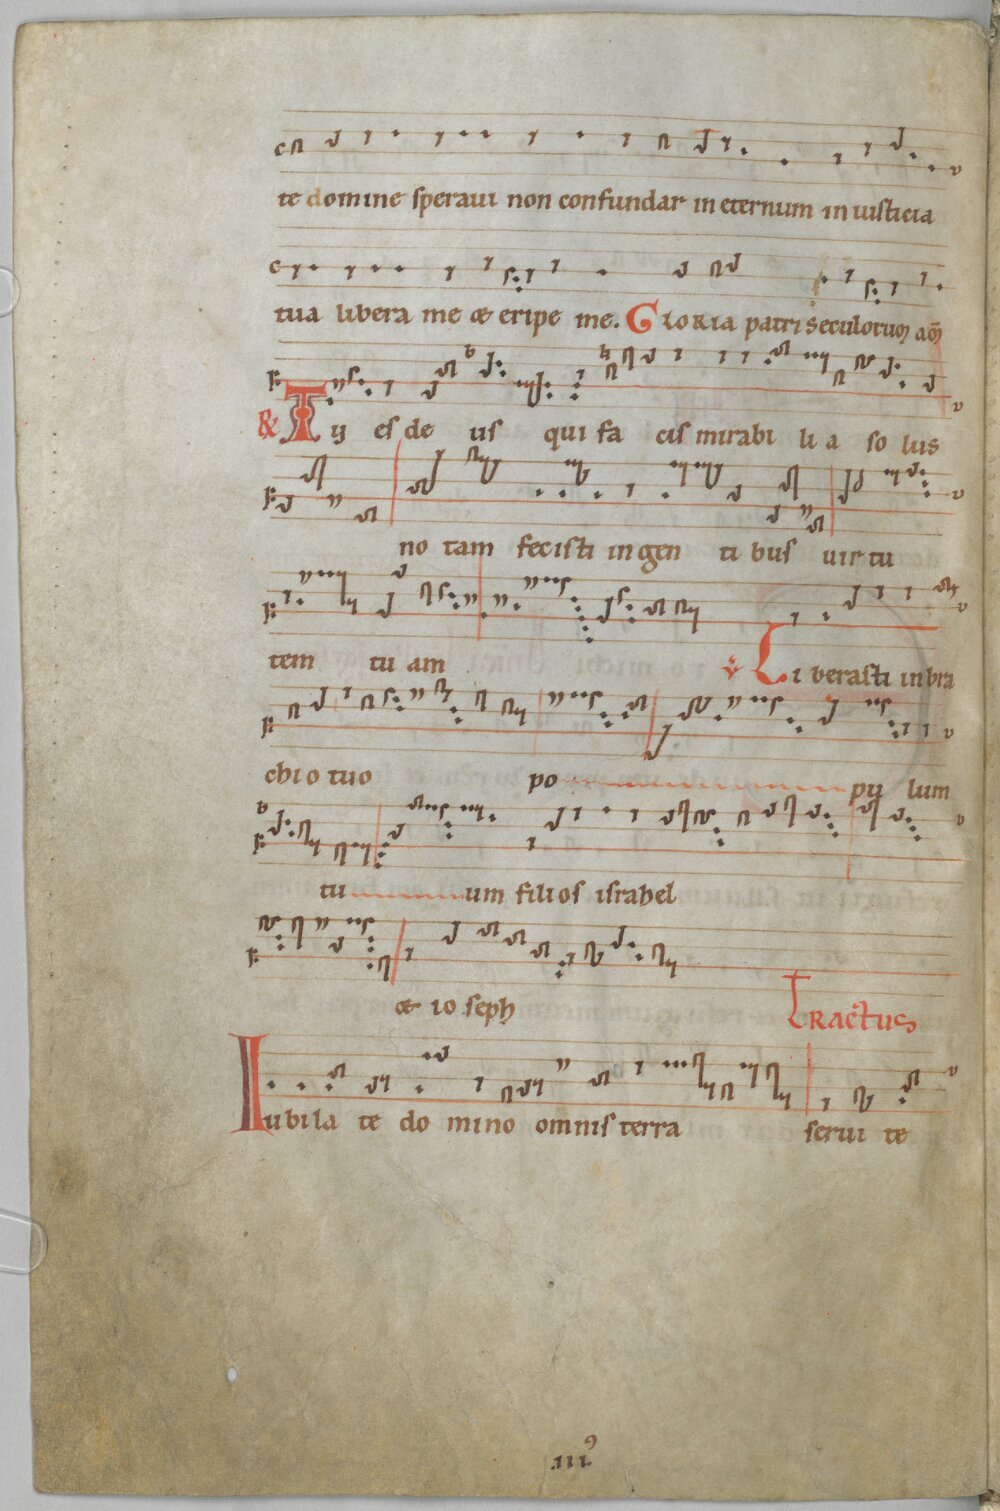 te domine speraui non confundar in eternum in iusticia
tua libera me & eripe me. Gloria patri seculorum am
& Ty es de us qui fa cis mirabi li a so lus
no tam fecisti in gen ti bus uir tu
tem tu am Li berasti in bra
chio tuo po pu lum
tu um filios israhel
& io seph Tractus
Iubila te do mino omnis terra serui te
III9